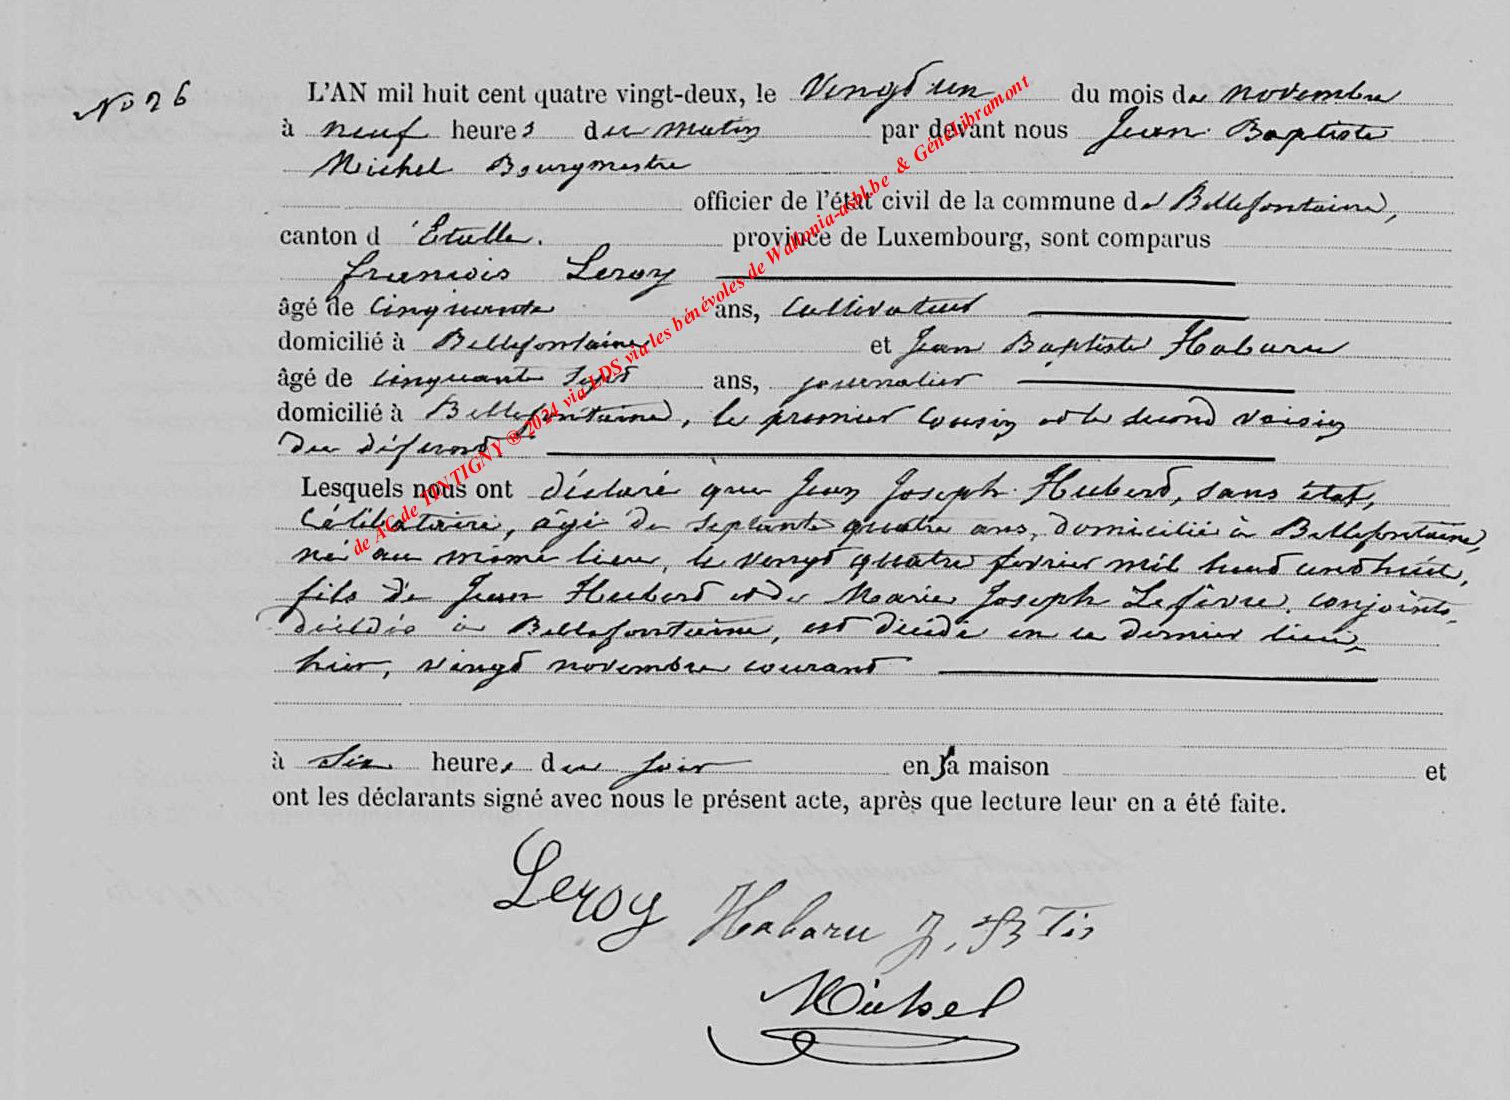 No 26
L'AN mil huit cent quatre vingt-deux, le Vingt un du mois de novembre
à neuf heures du matin par devant nous Jean Baptiste
Michel Bourgmestre
officier de l'état civil de la commune de Bellefontaine,
canton d'Etalle. province de Luxembourg, sont comparus
françois Leroy
âgé de cinquante ans, cultivateur
domicilié à Bellefontaine et Jean Baptiste Habaru
âgé de cinquante sept ans, journalier
domicilié à Bellefontaine, le premier cousin et le second voisin
du défunt
Lesquels nous ont déclaré que Jean Joseph Hubert, sans état,
célibataire, âgé de septante quatre ans, domicilié à Bellefontaine,
né au même lieu, le vingt quatre fevrier mil huit cent huit,
fils de Jean Hubert et de Marie Joseph Lefèvre, conjoints
décédés à Bellefontaine, est décédé en ce dernier lieu,
hier, vingt novembre courant
à six heures du soir en sa maison et
ont les déclarants signé avec nous le présent acte, après que lecture leur en a été faite.
Leroy Habaru J. Bte
Michel
de AC de TINTIGNY ® 2024 via LDS via les bénévoles de Wallonia-asbl.be & GénéLibramont